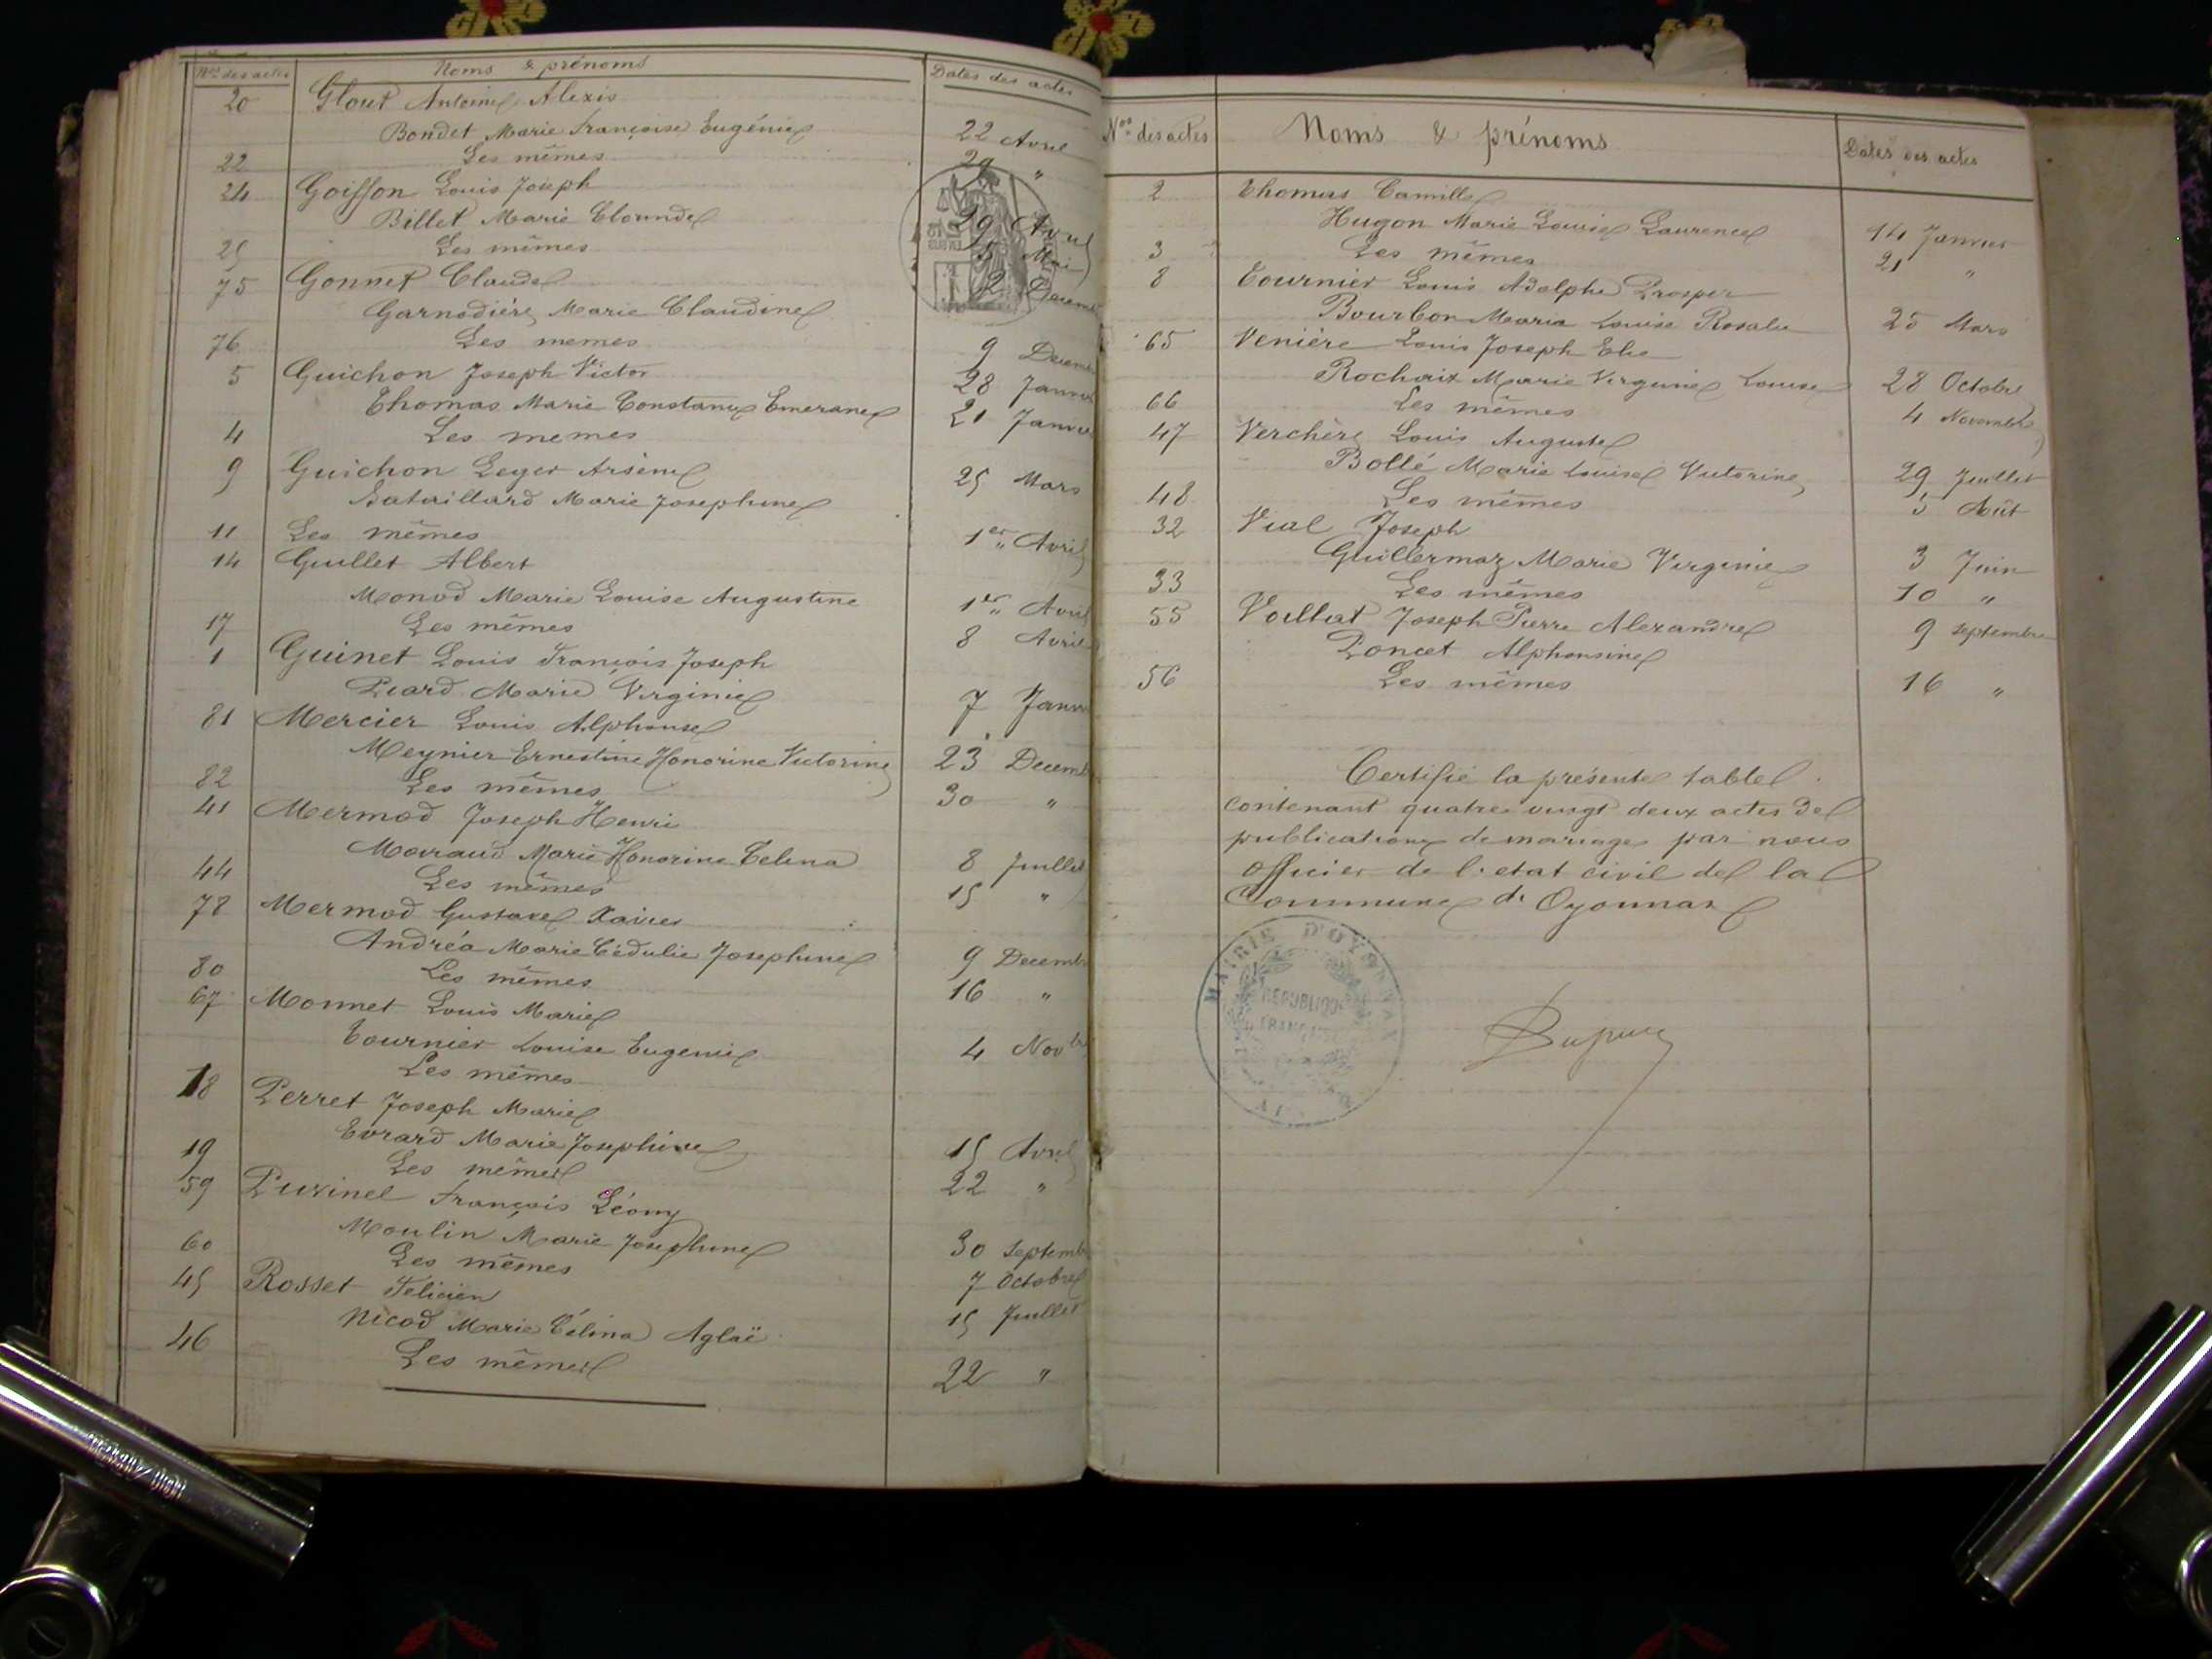 Nos des actes Noms & prénoms Dates des actes
20 Glout Antoine Alexis
Bondet Marie Françoise Eugénie 22 Avril
22 Les mêmes 29 "
24 Goisson Louis Joseph
Billet Marie 29 Avril
25 Les mêmes 5 Mai
75 Gonnet Claude
Garnodière Marie Claudine 2
76 Les memes 9
5 Guichon Joseph Victor 28
Thomas Marie Constance Emerance 21
4 Les memes
9 Guichon Leger Arsène
Bataillard Marie Josephine 25 Mars
11 Les mêmes 1er " Avril
14 Guillet Albert
Monod Marie Louise Augustine 1er " Avril
17 Les mêmes 8 Avril
1 Guinet Louis François Joseph
Piard Marie Virginie 7
81 Mercier Louis Alphonse
Meynier Ernestine Honorine Victorine 23
82 Les mêmes 30 "
41 Mermod Joseph Henri
Maraud Marie Honorine Celina 8 Juillet
44 Les mêmes 15 "
78 Mermod Gustave Xavier
Andréa Marie Cédulie Josephine 9
80 Les mêmes 16 "
67 Monnet Louis Marie
Tournier Louise Eugenie 4 Novbr
Les mêmes
18 Perret Joseph Marie
Evrard Marie Josephine 15 Avril
19 Les mêmes 22 "
59 Puvinel François Léomy
Moulin Marie Josephine 30
60 Les mêmes 7 Octobre
45 Rosset Félicien 15 Juillet
Nicod Marie Célina Aglaë
46 Les mêmes 22 "
Nos des actes Noms & prénoms Dates des actes
2 Thomas Camille
Hugon Marie Louise Laurence 14 Janvier
3 Les mêmes 21 "
8 Tournier Louis Adolphe Prosper
Bourbon Maria Louise Rosalie 25 Mars
65 Venière Louis Joseph Elie
Rochaix Marie Virginie Louise 28 Octobre
66 Les mêmes 4 Novembre
47 Verchère Louis Auguste
Bollé Marie Louise Victorine 29 Juillet
48 Les mêmes 5 Août
32 Vial Joseph
Guillermaz Marie Virginie 3 Juin
33 Les mêmes 10 "
55 Voillat Joseph Pierre Alexandre 9 Septembre
Poncet Alphonsine
56 Les mêmes 16 "
Certifié la présente table
contenant quatre vingt deux actes de
publications de mariage par nous
officier de l'etat civil de la
Commune d'Oyonnax
MAIRIE D'OYONNAX
REPUBLIQUE
FRANÇAISE
AIN
Dupuy